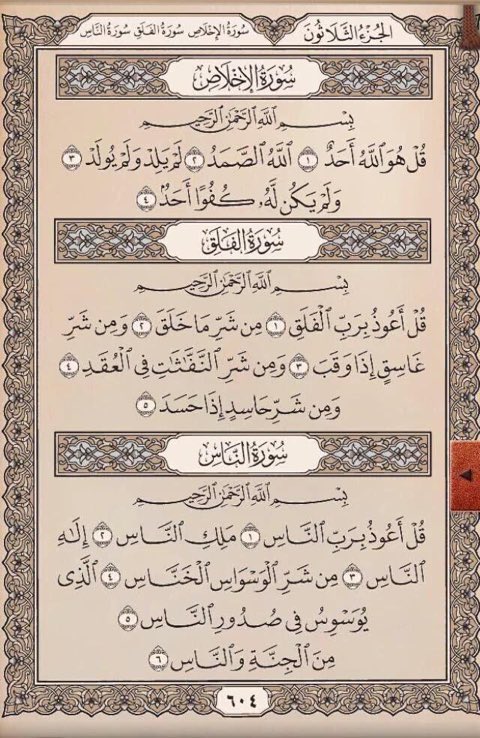 الجزء الثلاثون
سورة الإخلاص سورة الفلق سورة الناس
سُورَةُ الإِخْلَاصِ
بِسْمِ اللَّهِ الرَّحْمَٰنِ الرَّحِيمِ
قُلْ هُوَ اللَّهُ أَحَدٌ ١ اللَّهُ الصَّمَدُ ٢ لَمْ يَلِدْ وَلَمْ يُولَدْ ٣
وَلَمْ يَكُن لَّهُۥ كُفُوًا أَحَدٌۢ ٤
سُورَةُ الفَلَقِ
بِسْمِ اللَّهِ الرَّحْمَٰنِ الرَّحِيمِ
قُلْ أَعُوذُ بِرَبِّ الْفَلَقِ ١ مِن شَرِّ مَا خَلَقَ ٢ وَمِن شَرِّ
غَاسِقٍ إِذَا وَقَبَ ٣ وَمِن شَرِّ النَّفَّٰثَٰتِ فِى الْعُقَدِ ٤
وَمِن شَرِّ حَاسِدٍ إِذَا حَسَدَ ٥
سُورَةُ النَّاسِ
بِسْمِ اللَّهِ الرَّحْمَٰنِ الرَّحِيمِ
قُلْ أَعُوذُ بِرَبِّ النَّاسِ ١ مَلِكِ النَّاسِ ٢ إِلَٰهِ
النَّاسِ ٣ مِن شَرِّ الْوَسْوَاسِ الْخَنَّاسِ ٤ الَّذِى
يُوَسْوِسُ فِى صُدُورِ النَّاسِ ٥
مِنَ الْجِنَّةِ وَالنَّاسِ ٦
٦٠٤